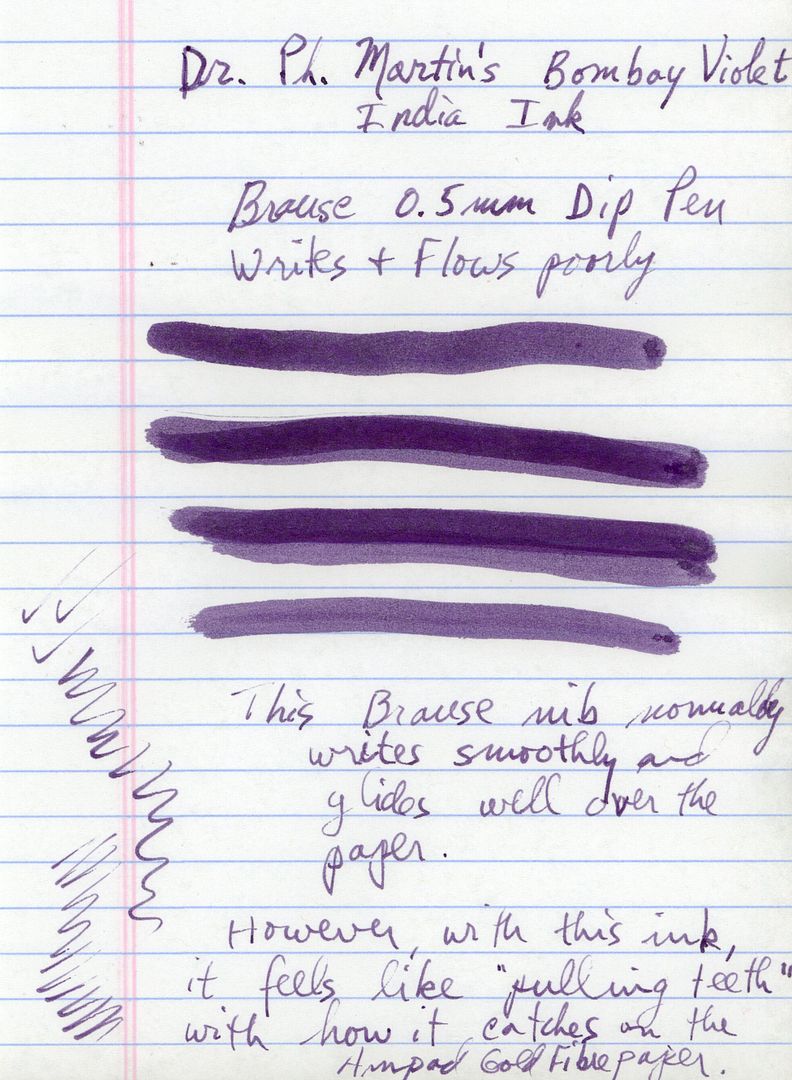 Dr. Ph. Martin's Bombay Violet
India Ink
Brause 0.5mm Dip Pen
Writes + Flows poorly
This Brause nib normally
writes smoothly and
glides well over the
paper.
However, with this ink,
it feels like "pulling teeth"
with how it catches on the
Ampad Gold Fibre paper.